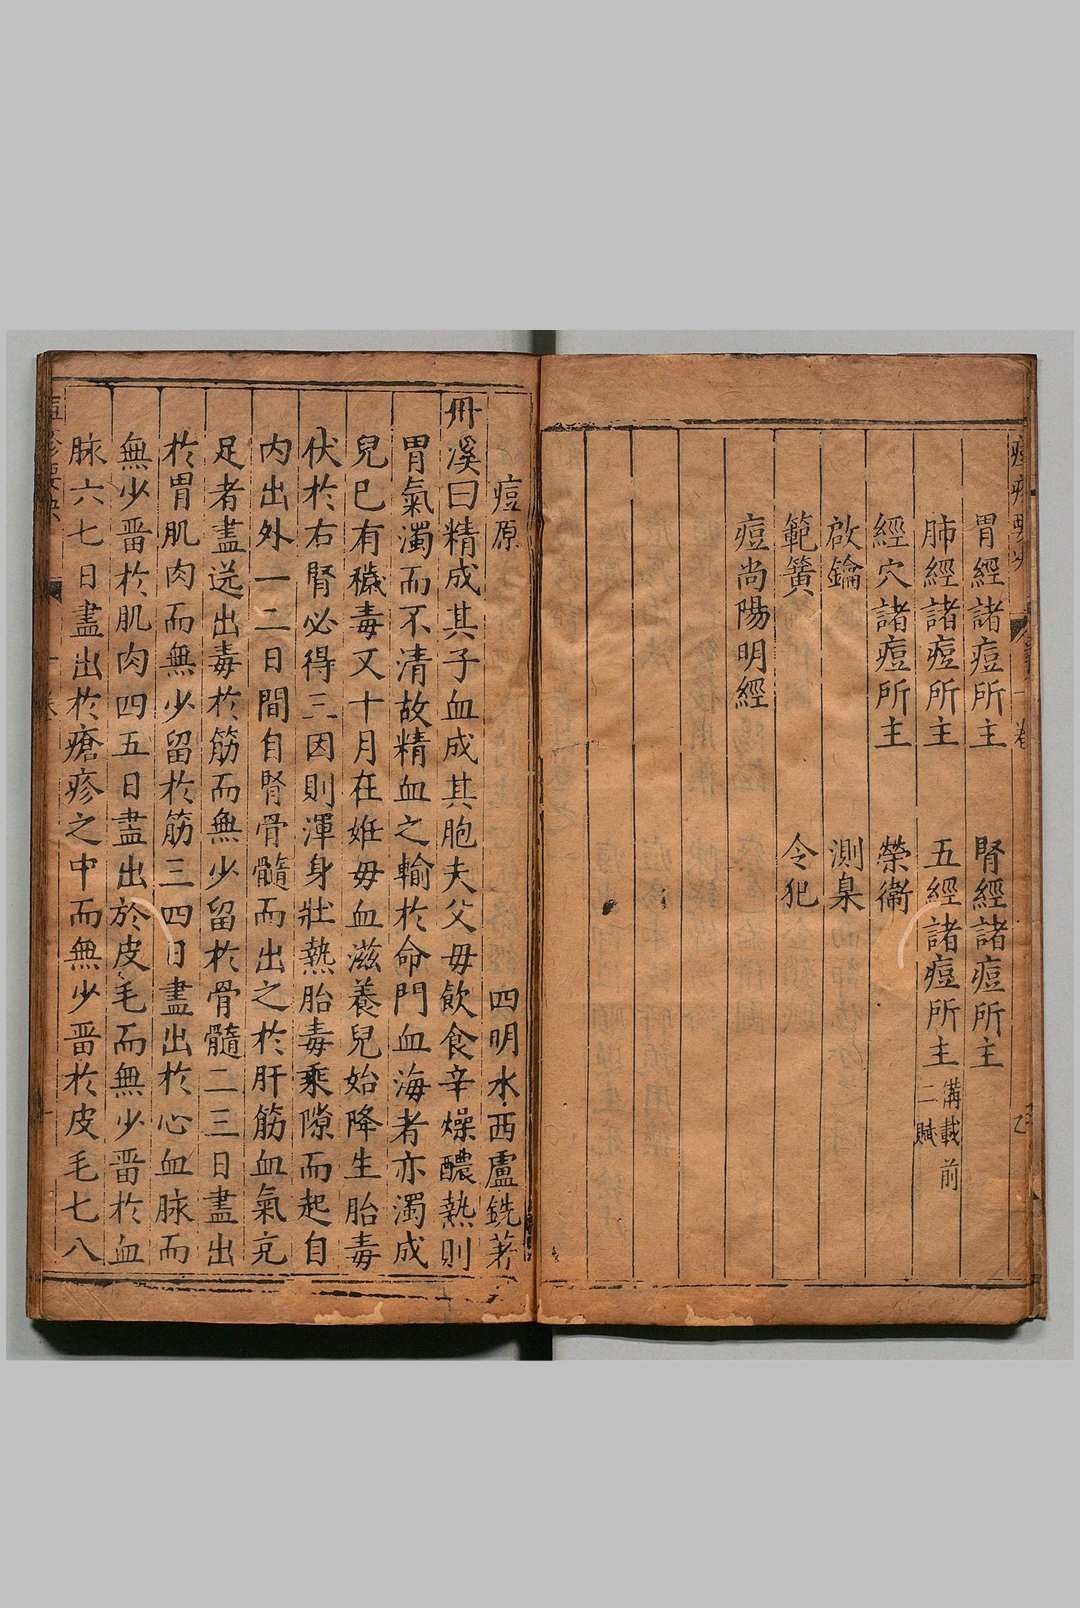 胃經諸痘所主 腎經諸痘所主
肺經諸痘所主 五經諸痘所主 二賦溝載前
經穴諸痘所主 榮衞
啟鑰 測臬
範簧 令犯
痘尚陽明經
痘原 四明水西盧銑著
冊溪曰精成其子血成其胞夫父毋飲食辛燥醲熱則
胃氣濁而不清故精血之輸扵命門血海者亦濁成
兒已有穢毒又十月在姙毋血滋養兒始降生胎毒
伏扵右腎必得三因則渾身壯熱胎毒乘隙而起自
内出外一二日間自腎骨髓而出之扵肝筋血氣充
足者盡送出毒扵筋而無少留扵骨髓二三日盡出
扵胃肌肉而無少留扵筋三四日盡出扵心血脉而
無少畱扵肌肉四五日盡出於皮毛而無少畱扵血
脉六七日盡出扵瘡疹之中而無少畱扵皮毛七八